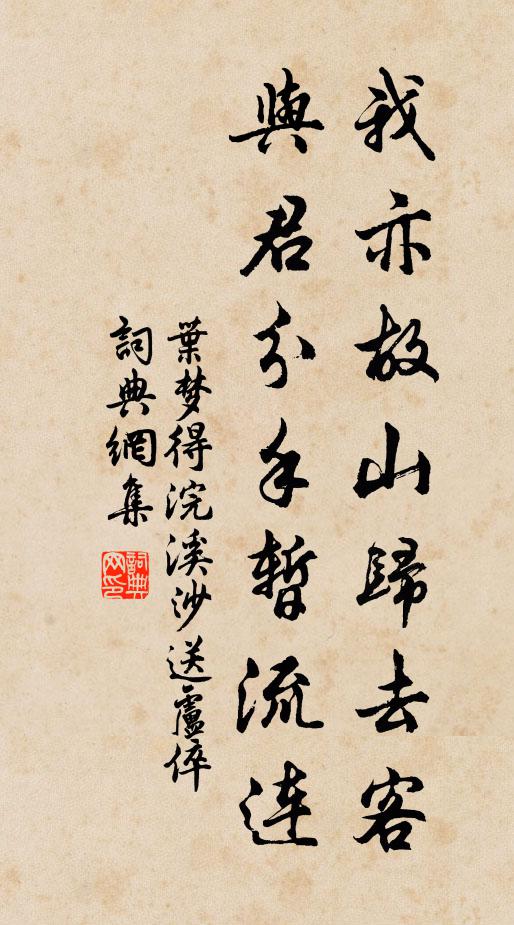 我亦故山歸去客
與君分手暫流連
葉梦得浣溪沙送盧倅
詞典網集
詞典网印